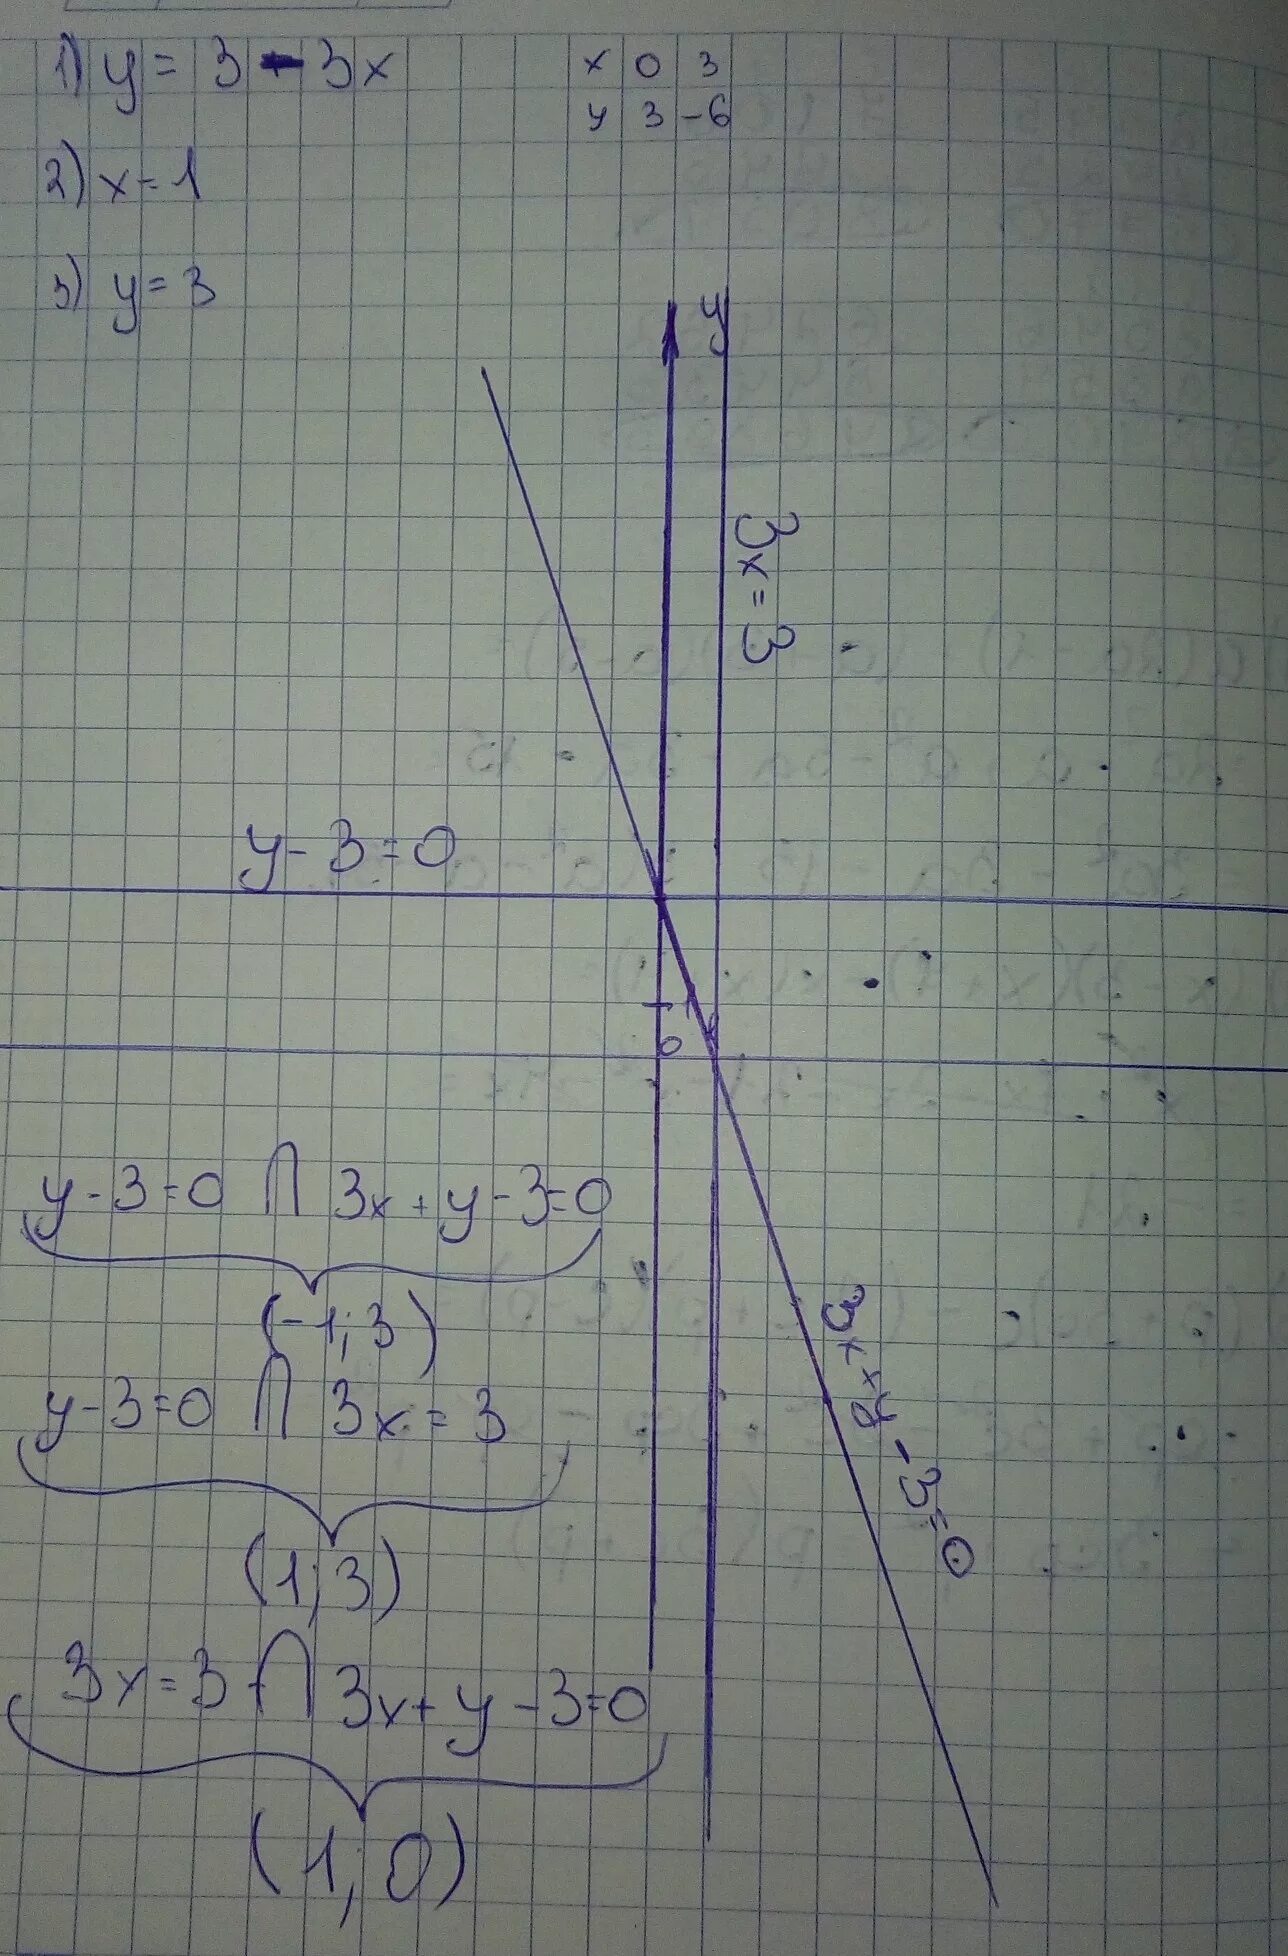 1) y = 3 - 3x
x 0 3
y 3 -6
2) x = 1
3) y = 3
y
3x = 3
y - 3 = 0
0
y - 3 = 0 ∩ 3x + y - 3 = 0
(-1; 3)
y - 3 = 0 ∩ 3x = 3
(1; 3)
3x = 3 ∩ 3x + y - 3 = 0
(1; 0)
3x + y - 3 = 0